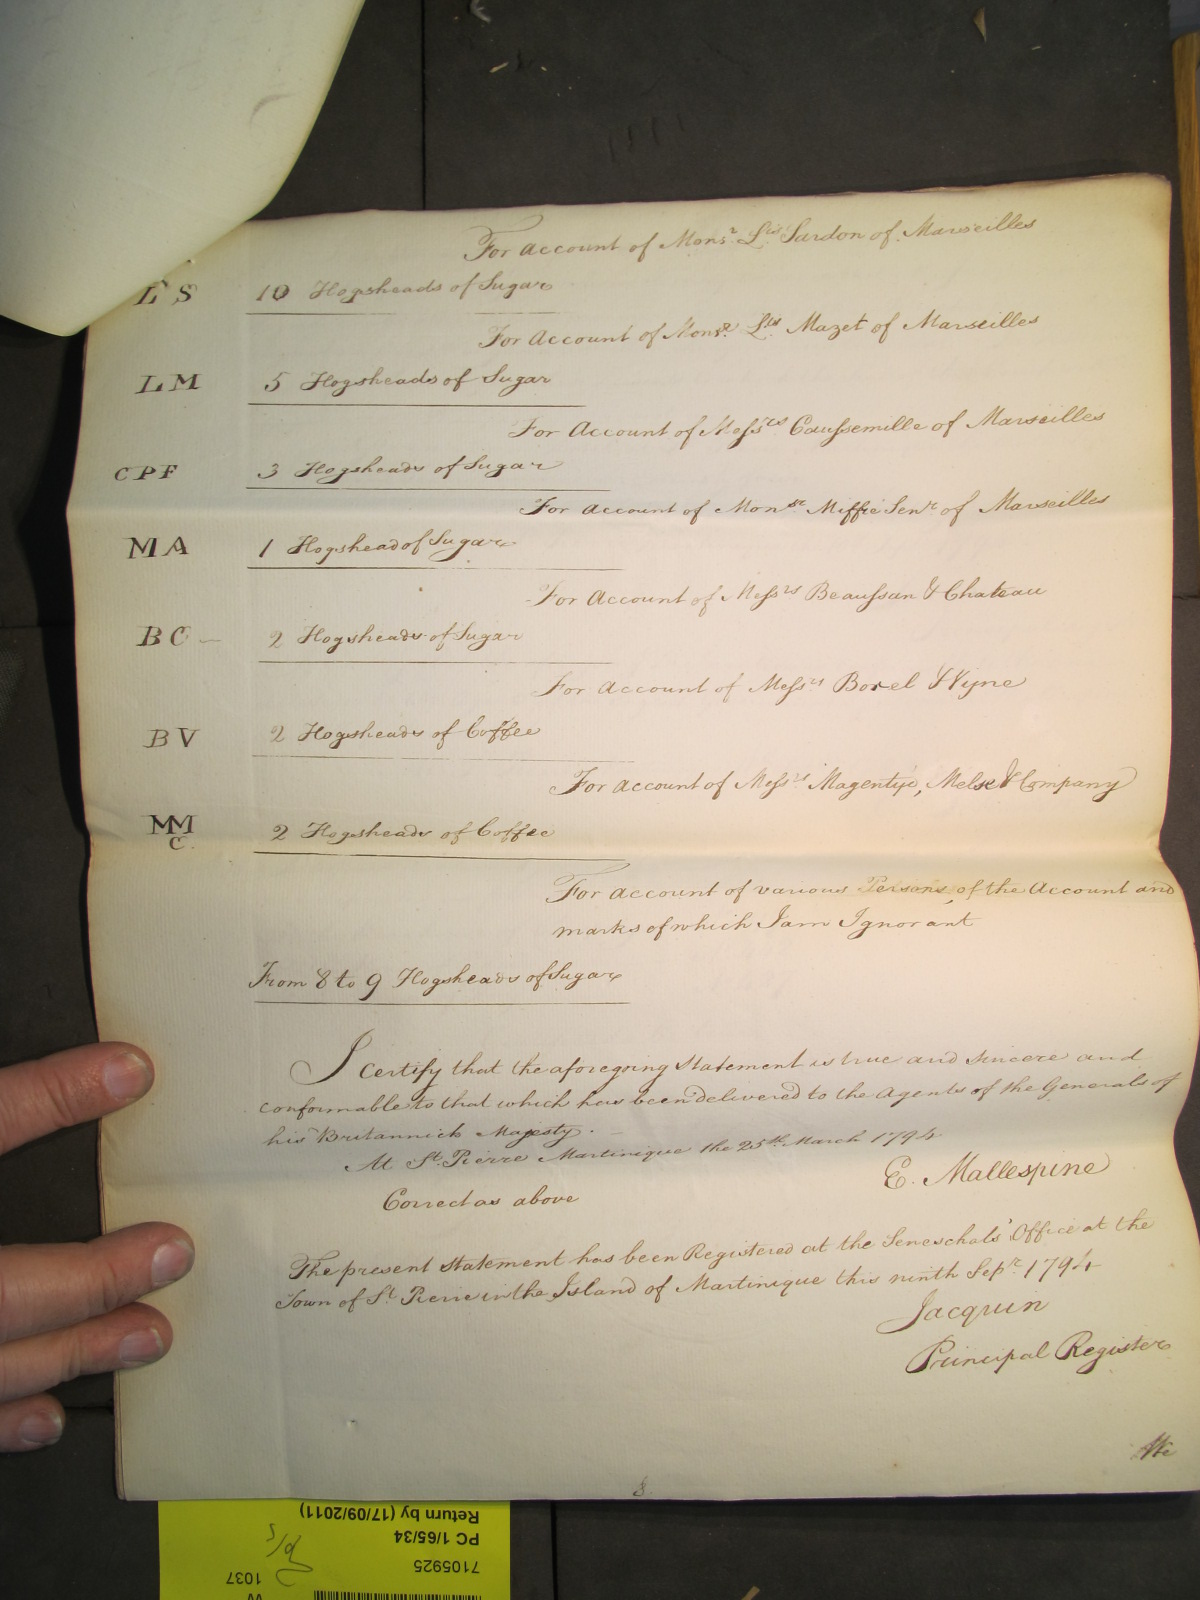 For account of Monsr. Lis. Sardon of Marseilles
L S 10 Hogsheads of Sugar
For Account of Monsr. Lis. Mazet of Marseilles
L M 5 Hogsheads of Sugar
For Account of Messrs Caussemille of Marseilles
C P F 3 Hogsheads of Sugar
For Account of Monsr Miffie Senr of Marseilles
M A 1 Hogshead of Sugar
For Account of Messrs Beaussan & Chateau
B C - 2 Hogsheads of Sugar
For Account of Messrs Borel & Vyne
B V 2 Hogsheads of Coffee
For Account of Messrs Magentye, Melse & Company
MM
C 2 Hogsheads of Coffee
For account of various Persons, of the Account and
marks of which I am Ignorant
From 8 to 9 Hogsheads of Sugar
I certify that the aforegoing Statement is true and sincere and
conformable to that which has been delivered to the Agents of the Generals of
his Britannick Majesty.
At St. Pierre Martinique the 25th March 1794
E. Mallespine
Correct as above
The present Statement has been Registered at the Seneschals' Office at the
Town of St Pierre in the Island of Martinique this ninth Sepr 1794
Jacquin
Principal Register
We
8
Return by (17/09/2011)
PC 1/65/34
7105925
1037